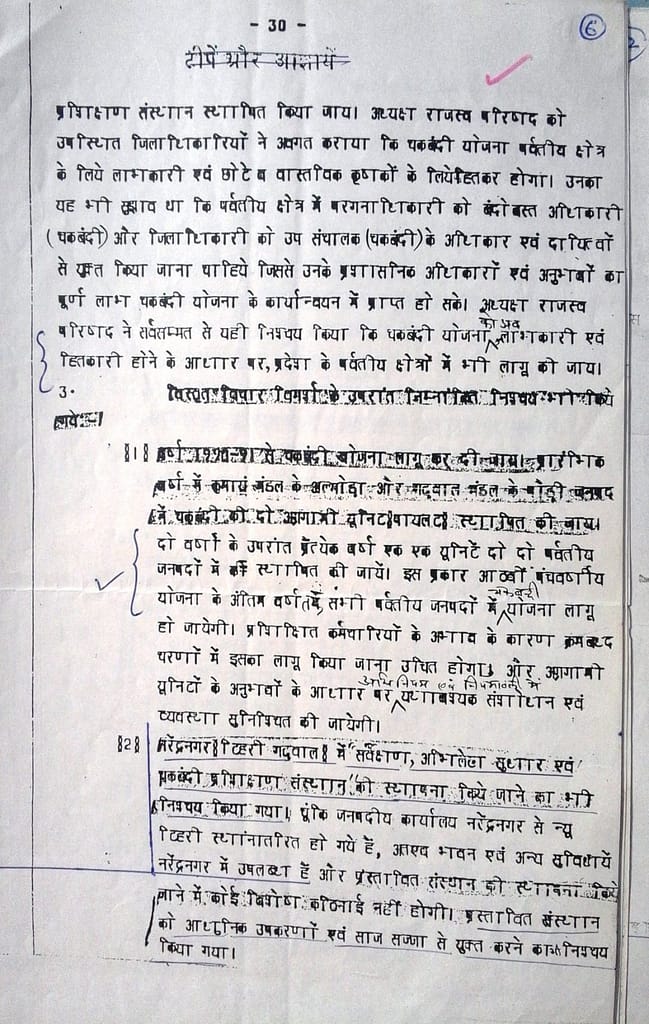 - 30 -
6
2
टीपें और आज्ञायें
प्रशिक्षण संस्थान स्थापित किया जाय। अध्यक्ष राजस्व परिषद को
उपस्थित जिलाधिकारियों ने अवगत कराया कि चकबंदी योजना पर्वतीय क्षेत्र
के लिये लाभकारी एवं छोटे व वास्तविक कृषकों के लियेहितकर होगा। उनका
यह भी सुझाव था कि पर्वतीय क्षेत्र में परगनाधिकारी को बंदोबस्त अधिकारी
(चकबंदी) और जिलाधिकारी को उप संचालक (चकबंदी) के अधिकार एवं दायित्वों
से युक्त किया जाना चाहिये जिससे उनके प्रशासनिक अधिकारों एवं अनुभवों का
पूर्ण लाभ चकबंदी योजना के कार्यान्वयन में प्राप्त हो सके। अध्यक्ष राजस्व
परिषद ने सर्वसम्मत से यही निश्चय किया कि चकबंदी योजना लाभकारी एवं
हितकारी होने के आधार पर, प्रदेश के पर्वतीय क्षेत्रों में भी लागू की जाय।
3. विस्तृत विचार विमर्श के उपरांत निम्नांकित निश्चय भी किये
गये:-
|1| वर्ष 1990-91 से चकबंदी योजना लागू कर दी जाय। प्रारंभिक
वर्ष में कुमायूं मंडल के अल्मोडा और गढवाल मंडल के पौडी जनपद
में चकबंदी की दो अग्रगामी यूनिट |पायलट| स्थापित की जाय।
दो वर्षों के उपरांत प्रत्येक वर्ष एक एक यूनिटें दो दो पर्वतीय
जनपदों में स्थापित की जायें। इस प्रकार आठवीं पंचवर्षीय
योजना के अंतिम वर्ष सभी पर्वतीय जनपदों में चकबंदी योजना लागू
हो जायेगी। प्रशिक्षित कर्मचारियों के अभाव के कारण क्रमबध्द
चरणों में इसका लागू किया जाना उचित होगा। और अग्रगामी
यूनिटों के अनुभवों के आधार पर अधिनियम एवं नियमावली में यथावश्यक संशोधन एवं
व्यवस्था सुनिश्चित की जायेगी।
|2| नरेंद्रनगर |टिहरी गढवाल| में "सर्वेक्षण, अभिलेख सुधार एवं
चकबंदी प्रशिक्षण संस्थान" की स्थापना किये जाने का भी
निश्चय किया गया। चूंकि जनपदीय कार्यालय नरेंद्रनगर से न्यू
टिहरी स्थांनातरित हो गये हैं, अतएव भवन एवं अन्य सुविधायें
नरेंद्रनगर में उपलब्ध हैं और प्रस्तावित संस्थान की स्थापना किये
जाने में कोई विशेष कठिनाई नहीं होगी। प्रस्तावित संस्थान
को आधुनिक उपकरणों एवं साज सज्जा से युक्त करने का निश्चय
किया गया।